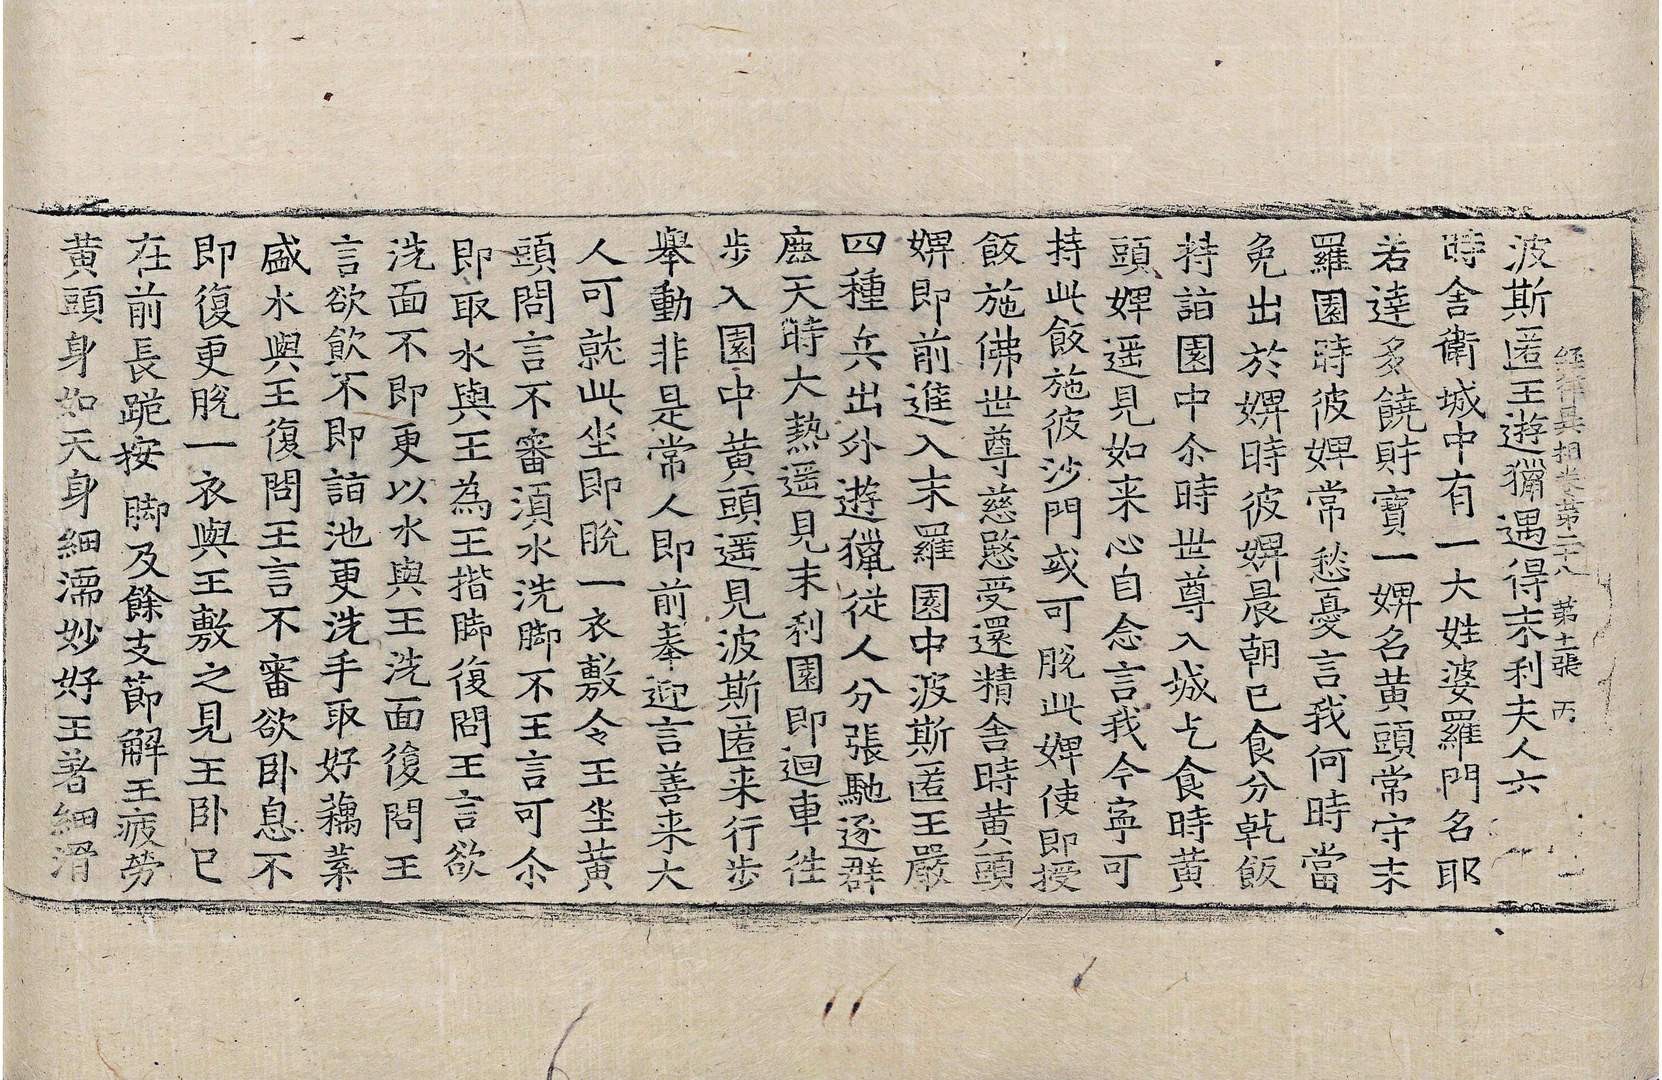 經律異相卷第二十八 第十一張 丙
波斯匿王遊獵遇得末利夫人六
時舍衛城中有一大姓婆羅門名耶
若達多饒財寶一婢名黃頭常守末
羅園時彼婢常愁憂言我何時當
免出於婢時彼婢晨朝已食分乹飯
持詣園中尒時世尊入城乞食時黃
頭婢遥見如来心自念言我今寧可
持此飯施彼沙門或可脫此婢使即授
飯施佛世尊慈愍受還精舍時黃頭
婢即前進入末羅園中波斯匿王嚴
四種兵出外遊獵從人分張馳逐群
鹿天時大熱遥見末利園即迴車往
步入園中黃頭遥見波斯匿来行步
舉動非是常人即前奉迎言善来大
人可就此坐即脫一衣敷令王坐黃
頭問言不審湏水洗脚不王言可尒
即取水與王為王揩脚復問王言欲
洗面不即更以水與王洗面復問王
言欲飲不即詣池更洗手取好藕葉
盛水與王復問王言不審欲卧息不
即復更脫一衣與王敷之見王卧已
在前長跪按脚及餘支節解王疲勞
黃頭身如天身細濡妙好王著細滑